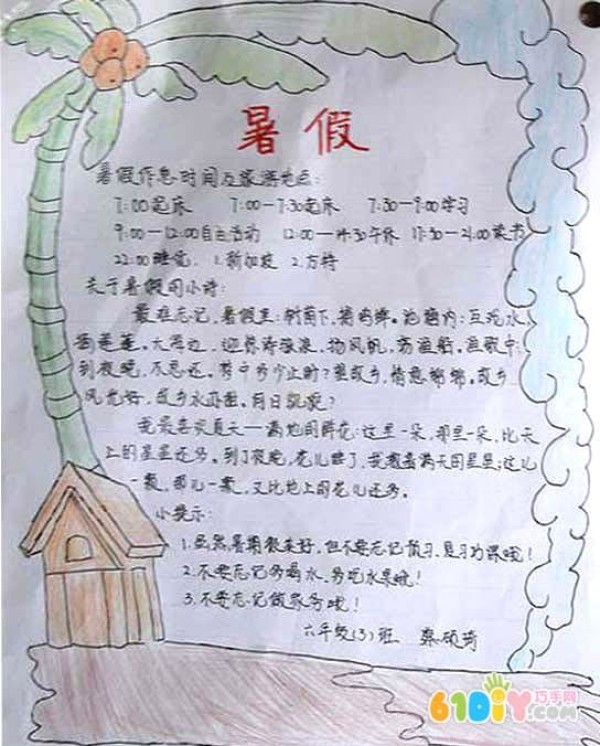 暑假
暑假作息时间及旅游地点:
7:00起床 7:00—7:30起床 7:30—9:00学习
9:00—12:00自主活动 12:00—14:30午休 17:30—21:00读书
22:00睡觉. 1.新加坡 2.方特
关于暑假的小诗:
最难忘记,暑假里:树荫下,捕鸣蝉。池塘内:互戏水,
摘莲蓬。大海边,迎惊涛骇浪,扬风帆,荡渔船。渔歌中:
到夜晚,不忍还。梦中多少止时?望故乡,情意绵绵。故乡
风光好,故乡水
我最喜欢夏天—满地的鲜花:这里一朵,那里一朵,比天
上的星星还多。到了夜晚,花儿睡了,我数着满天的星星:这儿
一颗,那儿一颗,又比地上的花儿还多。
小提示:
1.虽然暑期很美好,但不要忘记预习,复习功课哦!
2.不要忘记多喝水,多吃水果哦!
3.不要忘记做家务哦!
六年级(3)班 蔡硕琦
61DIY巧手网
.com